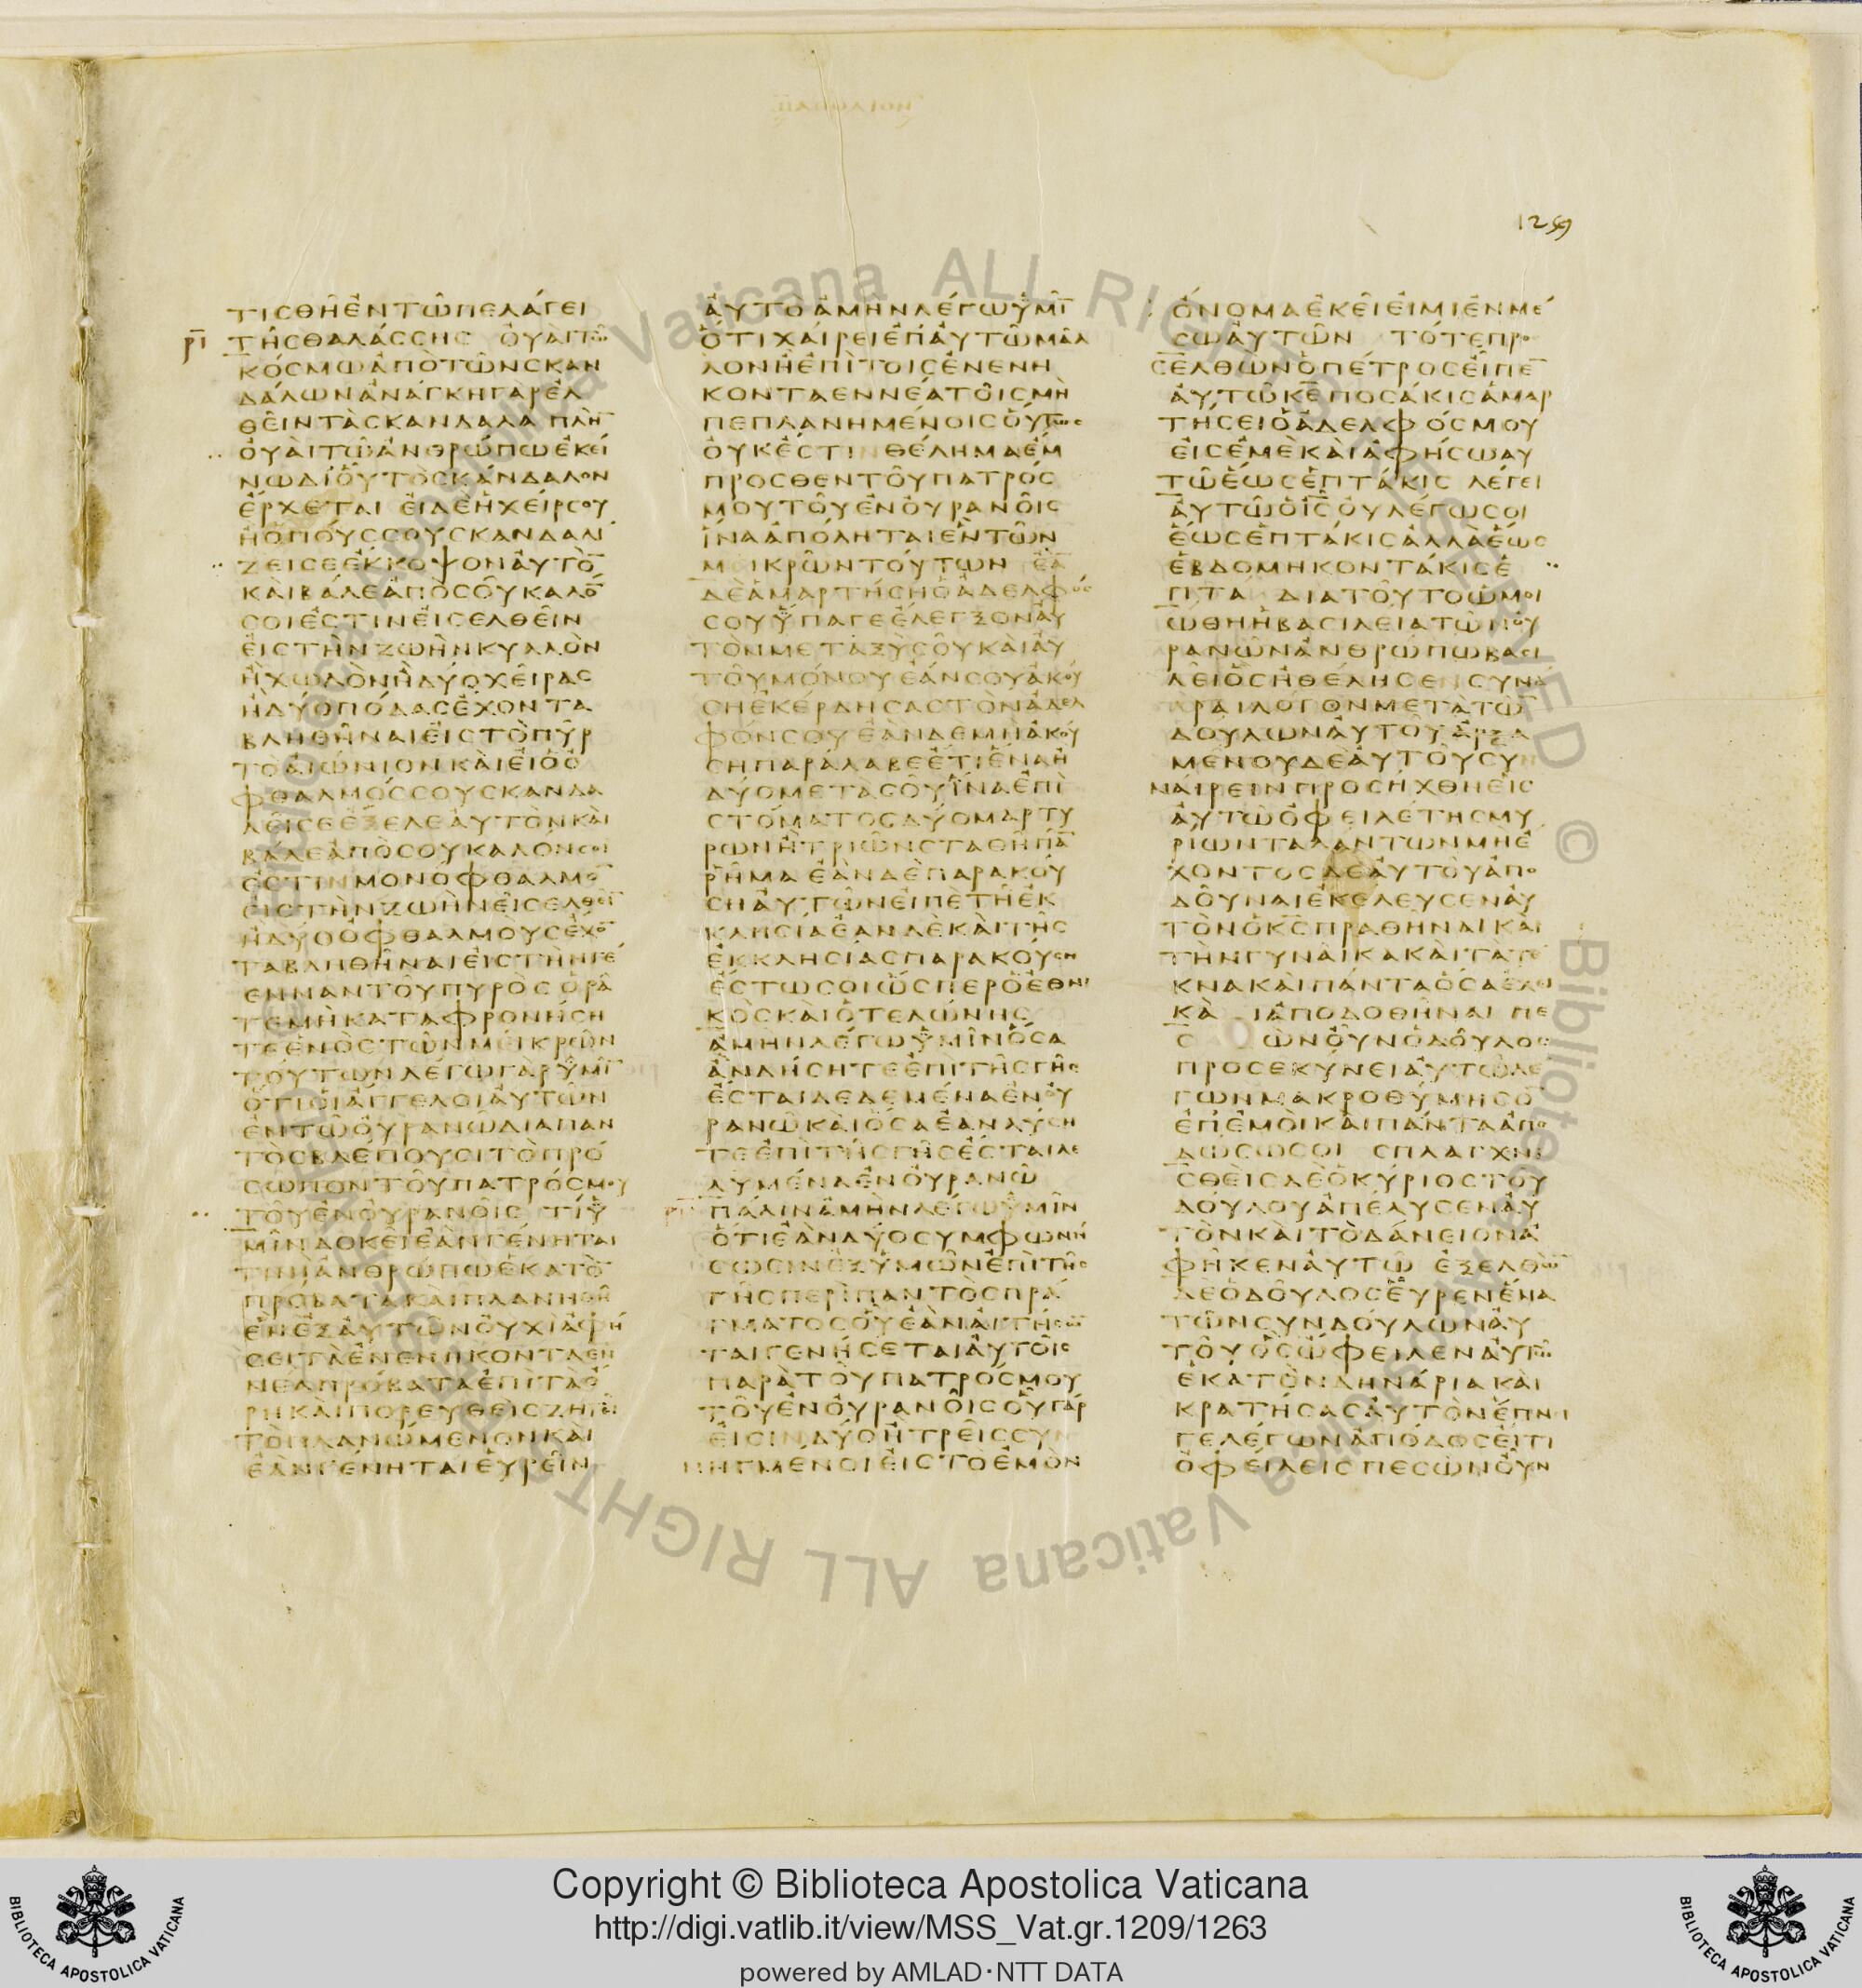 1259
ΤΙϹΘΗΕΝΤΩΠΕΛΑΓΕΙ
ΡΙ ΤΗϹΘΑΛΑϹϹΗϹ ΟΥΑΙΤΩ
ΚΟϹΜΩΑΠΟΤΩΝϹΚΑΝ
ΔΑΛΩΝΑΝΑΓΚΗΓΑΡΕΛ
ΘΕΙΝΤΑϹΚΑΝΔΑΛΑ ΠΛΗ̅
ΟΥΑΙΤΩΑΝΘΡΩΠΩΕΚΕΙ
ΝΩΔΙΟΥΤΟϹΚΑΝΔΑΛΟΝ
ΕΡΧΕΤΑΙ ΕΙΔΕΗΧΕΙΡϹΟΥ
ΗΟΠΟΥϹϹΟΥϹΚΑΝΔΑΛΙ
ΖΕΙϹΕΕΚΚΟΨΟΝΑΥΤΟ̅
ΚΑΙΒΑΛΕΑΠΟϹΟΥΚΑΛΟ̅
ϹΟΙΕϹΤΙΝΕΙϹΕΛΘΕΙΝ
ΕΙϹΤΗΝΖΩΗΝΚΥΛΛΟΝ
ΗΧΩΛΟΝΗΔΥΟΧΕΙΡΑϹ
ΗΔΥΟΠΟΔΑϹΕΧΟΝΤΑ
ΒΛΗΘΗΝΑΙΕΙϹΤΟΠΥΡ
ΤΟΑΙΩΝΙΟΝΚΑΙΕΙΟΟ
ΦΘΑΛΜΟϹϹΟΥϹΚΑΝΔΑ
ΛΕΙϹΕΕΞΕΛΕΑΥΤΟΝΚΑΙ
ΒΑΛΕΑΠΟϹΟΥΚΑΛΟΝϹΟΙ
ΕϹΤΙΝΜΟΝΟΦΘΑΛΜΟ̅
ΕΙϹΤΗΝΖΩΗΝΕΙϹΕΛΘΕΙ̅
ΗΔΥΟΟΦΘΑΛΜΟΥϹΕΧΟ̅
ΤΑΒΛΗΘΗΝΑΙΕΙϹΤΗΝΓΕ
ΕΝΝΑΝΤΟΥΠΥΡΟϹ ΟΡΑ
ΤΕΜΗΚΑΤΑΦΡΟΝΗϹΗ
ΤΕΕΝΟϹΤΩΝΜΕΙΚΡΩΝ
ΤΟΥΤΩΝΛΕΓΩΓΑΡΥΜΙ̅
ΟΤΙΟΙΑΓΓΕΛΟΙΑΥΤΩΝ
ΕΝΤΩΟΥΡΑΝΩΔΙΑΠΑΝ
ΤΟϹΒΛΕΠΟΥϹΙΤΟΠΡΟ
ϹΩΠΟΝΤΟΥΠΑΤΡΟϹΜΟΥ
ΤΟΥΕΝΟΥΡΑΝΟΙϹ ΤΙΥ
ΜΙΝΔΟΚΕΙΕΑΝΓΕΝΗΤΑΙ
ΤΙΝΙΑΝΘΡΩΠΩΕΚΑΤΟ̅
ΠΡΟΒΑΤΑΚΑΙΠΛΑΝΗΘΗ
ΕΝΕΞΑΥΤΩΝΟΥΧΙΑΦΗ
ϹΕΙΤΑΕΝΕΝΗΚΟΝΤΑΕΝ
ΝΕΑΠΡΟΒΑΤΑΕΠΙΤΑΟ
ΡΗΚΑΙΠΟΡΕΥΘΕΙϹΖΗΤΕΙ
ΤΟΠΛΑΝΩΜΕΝΟΝΚΑΙ
ΕΑΝΓΕΝΗΤΑΙΕΥΡΕΙΝ
ΑΥΤΟΑΜΗΝΛΕΓΩΥΜΙ̅
ΟΤΙΧΑΙΡΕΙΕΠΑΥΤΩΜΑΛ
ΛΟΝΗΕΠΙΤΟΙϹΕΝΕΝΗ
ΚΟΝΤΑΕΝΝΕΑΤΟΙϹΜΗ
ΠΕΠΛΑΝΗΜΕΝΟΙϹΟΥΤΩϹ
ΟΥΚΕϹΤΙΝΘΕΛΗΜΑΕΜ
ΠΡΟϹΘΕΝΤΟΥΠΑΤΡΟϹ
ΜΟΥΤΟΥΕΝΟΥΡΑΝΟΙϹ
ΙΝΑΑΠΟΛΗΤΑΙΕΝΤΩΝ
ΜΕΙΚΡΩΝΤΟΥΤΩΝ ΕΑ̅
ΔΕΑΜΑΡΤΗϹΗΟΑΔΕΛΦΟϹ
ϹΟΥΥΠΑΓΕΕΛΕΓΞΟΝΑΥ
ΤΟΝΜΕΤΑΞΥϹΟΥΚΑΙΑΥ
ΤΟΥΜΟΝΟΥΕΑΝϹΟΥΑΚΟΥ
ϹΗΕΚΕΡΔΗϹΑϹΤΟΝΑΔΕΛ
ΦΟΝϹΟΥΕΑΝΔΕΜΗΑΚΟΥ
ϹΗΠΑΡΑΛΑΒΕΕΤΙΕΝΑΗ
ΔΥΟΜΕΤΑϹΟΥΙΝΑΕΠΙ
ϹΤΟΜΑΤΟϹΔΥΟΜΑΡΤΥ
ΡΩΝΗΤΡΙΩΝϹΤΑΘΗΠΑ̅
ΡΗΜΑΕΑΝΔΕΠΑΡΑΚΟΥ
ϹΗΑΥΤΩΝΕΙΠΕΤΗΕΚ
ΚΛΗϹΙΑΕΑΝΔΕΚΑΙΤΗϹ
ΕΚΚΛΗϹΙΑϹΠΑΡΑΚΟΥϹΗ
ΕϹΤΩϹΟΙΩϹΠΕΡΟΕΘΝΙ
ΚΟϹΚΑΙΟΤΕΛΩΝΗϹ
ΑΜΗΝΛΕΓΩΥΜΙΝΟϹΑ
ΑΝΔΗϹΗΤΕΕΠΙΤΗϹΓΗϹ
ΕϹΤΑΙΔΕΔΕΜΕΝΑΕΝΟΥ
ΡΑΝΩΚΑΙΟϹΑΕΑΝΛΥϹΗ
ΤΕΕΠΙΤΗϹΓΗϹΕϹΤΑΙΛΕ
ΛΥΜΕΝΑΕΝΟΥΡΑΝΩ
ΠΑΛΙΝΑΜΗΝΛΕΓΩΥΜΙΝ
ΟΤΙΕΑΝΔΥΟϹΥΜΦΩΝΗ
ϹΩϹΙΝΕΞΥΜΩΝΕΠΙΤΗϹ
ΓΗϹΠΕΡΙΠΑΝΤΟϹΠΡΑ
ΓΜΑΤΟϹΟΥΕΑΝΑΙΤΗϹΩ̅
ΤΑΙΓΕΝΗϹΕΤΑΙΑΥΤΟΙϹ
ΠΑΡΑΤΟΥΠΑΤΡΟϹΜΟΥ
ΤΟΥΕΝΟΥΡΑΝΟΙϹΟΥΓΑΡ
ΕΙϹΙΝΔΥΟΗΤΡΕΙϹϹΥ
ΝΗΓΜΕΝΟΙΕΙϹΤΟΕΜΟΝ
ΟΝΟΜΑΕΚΕΙΕΙΜΙΕΝΜΕ
ϹΩΑΥΤΩΝ ΤΟΤΕΠΡΟ
ϹΕΛΘΩΝΟΠΕΤΡΟϹΕΙΠΕ̅
ΑΥΤΩΚ̅Ε̅ΠΟϹΑΚΙϹΑΜΑΡ
ΤΗϹΕΙΟΑΔΕΛΦΟϹΜΟΥ
ΕΙϹΕΜΕΚΑΙΑΦΗϹΩΑΥ
ΤΩΕΩϹΕΠΤΑΚΙϹ ΛΕΓΕΙ
ΑΥΤΩΟΙ̅Ϲ̅ΟΥΛΕΓΩϹΟΙ
ΕΩϹΕΠΤΑΚΙϹΑΛΛΑΕΩϹ
ΕΒΔΟΜΗΚΟΝΤΑΚΙϹΕ
ΠΤΑ ΔΙΑΤΟΥΤΟΩΜΟΙ
ΩΘΗΗΒΑϹΙΛΕΙΑΤΩΝΟΥ
ΡΑΝΩΝΑΝΘΡΩΠΩΒΑϹΙ
ΛΕΙΟϹΗΘΕΛΗϹΕΝϹΥΝΑ
ΡΑΙΛΟΓΟΝΜΕΤΑΤΩ̅
ΔΟΥΛΩΝΑΥΤΟΥΑΡΞΑ
ΜΕΝΟΥΔΕΑΥΤΟΥϹΥ
ΝΑΙΡΕΙΝΠΡΟϹΗΧΘΗΕΙϹ
ΑΥΤΩΟΦΕΙΛΕΤΗϹΜΥ
ΡΙΩΝΤΑΛΑΝΤΩΝΜΗΕ
ΧΟΝΤΟϹΔΕΑΥΤΟΥΑΠΟ
ΔΟΥΝΑΙΕΚΕΛΕΥϹΕΝΑΥ
ΤΟΝΟΚ̅Ϲ̅ΠΡΑΘΗΝΑΙΚΑΙ
ΤΗΝΓΥΝΑΙΚΑΚΑΙΤΑΤΕ
ΚΝΑΚΑΙΠΑΝΤΑΟϹΑΕΧΕΙ
ΚΑΙΑΠΟΔΟΘΗΝΑΙ ΠΕ
ϹΩΝΟΥΝΟΔΟΥΛΟϹ
ΠΡΟϹΕΚΥΝΕΙΑΥΤΩΛΕ
ΓΩΝΜΑΚΡΟΘΥΜΗϹΟ̅
ΕΠΕΜΟΙΚΑΙΠΑΝΤΑΑΠΟ
ΔΩϹΩϹΟΙ ϹΠΛΑΓΧΝΙ
ϹΘΕΙϹΔΕΟΚΥΡΙΟϹΤΟΥ
ΔΟΥΛΟΥΑΠΕΛΥϹΕΝΑΥ
ΤΟΝΚΑΙΤΟΔΑΝΕΙΟΝΑ
ΦΗΚΕΝΑΥΤΩ ΕΞΕΛΘΩ̅
ΔΕΟΔΟΥΛΟϹΕΥΡΕΝΕΝΑ
ΤΩΝϹΥΝΔΟΥΛΩΝΑΥ
ΤΟΥΟϹΩΦΕΙΛΕΝΑΥΤΩ
ΕΚΑΤΟΝΔΗΝΑΡΙΑΚΑΙ
ΚΡΑΤΗϹΑϹΑΥΤΟΝΕΠΝΙ
ΓΕΛΕΓΩΝΑΠΟΔΟϹΕΙΤΙ
ΟΦΕΙΛΕΙϹΠΕϹΩΝΟΥΝ
Vaticana ALL RIGHTS RESERVED © Biblioteca Apostolica Vaticana ALL RIGHTS
Copyright © Biblioteca Apostolica Vaticana
http://digi.vatlib.it/view/MSS_Vat.gr.1209/1263
powered by AMLAD·NTT DATA
BIBLIOTECA APOSTOLICA VATICANA
BIBLIOTECA APOSTOLICA VATICANA